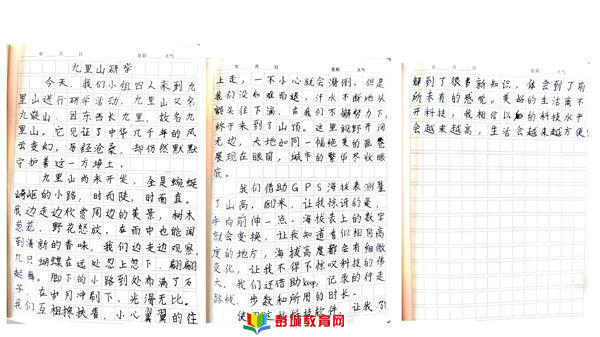 年 月 日 星期 天气
九里山研学
今天，我们小组四人来到九
里山进行研学活动，九里山又名
九嶷山，因东西长九里，故名九
里山。它见证了中华几千年的风
云变幻，历经沧桑，却仍然默默
守护着这一方净土。
九里山尚未开发，全是蜿蜒
崎岖的小路，时而陡，时而直。
我边走边欣赏周边的美景，树木
葱茏，野花怒放，在雨中也能闻
到清新的香味，我们边走边观察，
几只蝴蝶在远处忽上忽下，翩翩
起舞。脚下的小路到处布满了石
子，在岁月冲刷下，光滑无比。
我们互相搀扶着，小心翼翼的往
年 月 日 星期 天气
上走，一不小心就会滑倒，但是
我们没知难而退，汗水不断地从
额头往下滴，在我们不懈努力下，
终于来到了山顶。这里视野开阔
无边，大地如同一幅绝美的画卷
展现在眼前，城市的繁华尽收眼
底。
我们借助GPS海拔表测量
了山高，米，让我惊讶的是，
手向前伸一点，海拔表上的数字
就会变换，让我知道看似相同高
度的地方，海拔高度都会有细微
变化，让我不得不惊叹科技的伟
大。我们还借助keep，记录的行走
路线，步数和所用的时长。
使用这些科技软件，让我了
彭城教育网
年 月 日 星期 天气
解到了很多新知识，体会到了前
所未有的感觉。美好的生活离不
开科技，我相信以后的科技水平
会越来越高，生活会越来越方便！